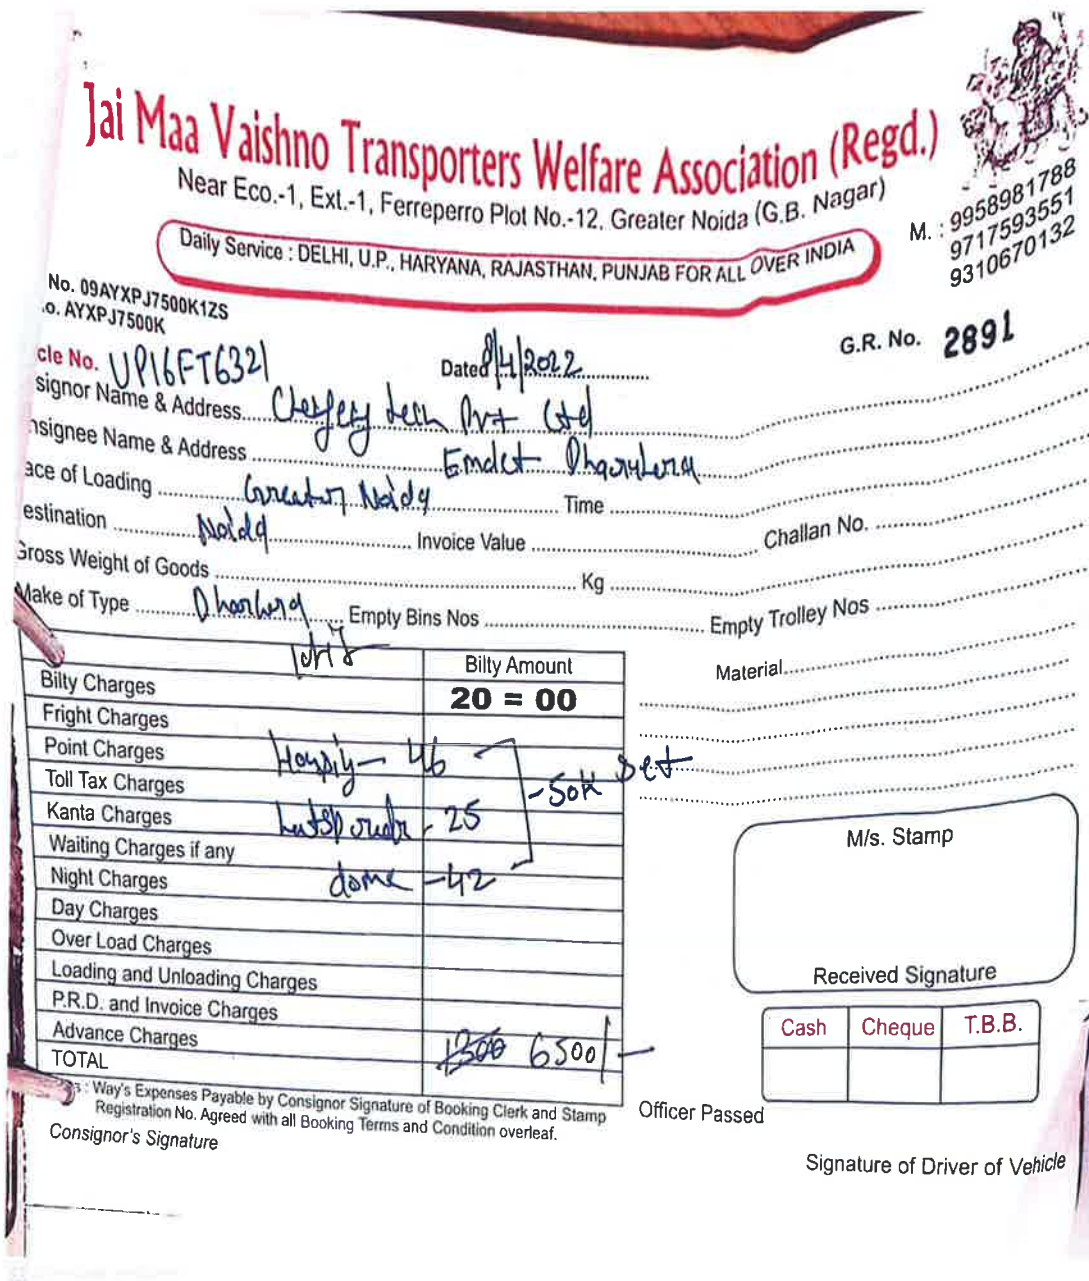 Jai Maa Vaishno Transporters Welfare Association (Regd.)
Near Eco.-1, Ext.-1, Ferreperro Plot No.-12, Greater Noida (G.B. Nagar)
M. : 9958981788
9717593551
9310670132
Daily Service : DELHI, U.P., HARYANA, RAJASTHAN, PUNJAB FOR ALL OVER INDIA
No. 09AYXPJ7500K1ZS
.o. AYXPJ7500K
G.R. No. 2891
cle No. UP16FT6321 Dated 8/4/2022
signor Name & Address tech Pvt Ltd
nsignee Name & Address Emdet
ace of Loading Greater Noida Time
estination Noida Invoice Value Challan No.
Gross Weight of Goods Kg
Make of Type Empty Bins Nos Empty Trolley Nos
Bilty Amount Material
Bilty Charges 20 = 00
Fright Charges
Point Charges 46
Toll Tax Charges - 50K Set
Kanta Charges - 25
Waiting Charges if any
Night Charges dome - 42
Day Charges
Over Load Charges
Loading and Unloading Charges
P.R.D. and Invoice Charges
Advance Charges
TOTAL 1300 6500/-
M/s. Stamp
Received Signature
Cash Cheque T.B.B.
: Way's Expenses Payable by Consignor Signature of Booking Clerk and Stamp
Registration No. Agreed with all Booking Terms and Condition overleaf.
Officer Passed
Consignor's Signature
Signature of Driver of Vehicle